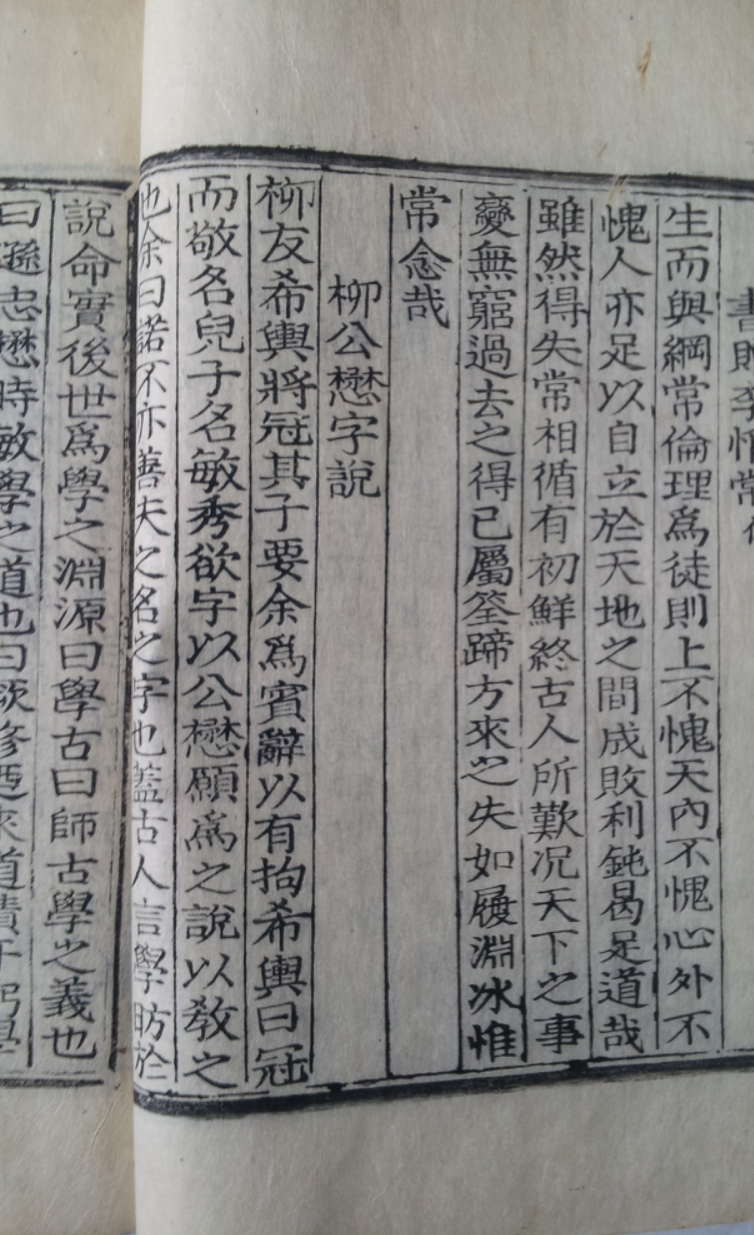 生而與綱常倫理爲徒則上不愧天內不愧心外不
愧人亦足以自立於天地之間成敗利鈍曷足道哉
雖然得失常相循有初鮮終古人所歎况天下之事
變無窮過去之得已屬筌蹄方來之失如履淵冰惟
常念哉
柳公懋字說
柳友希輿將冠其子要余爲賓辭以有拘希輿曰冠
而敬名兒子名敏秀欲字以公懋願爲之說以敎之
也余曰諾不亦善夫之名之字也蓋古人言學昉於
說命實後世爲學之淵源曰學古曰師古學之義也
曰遜志懋時敏學之道也曰厥修乃來道積于躬學